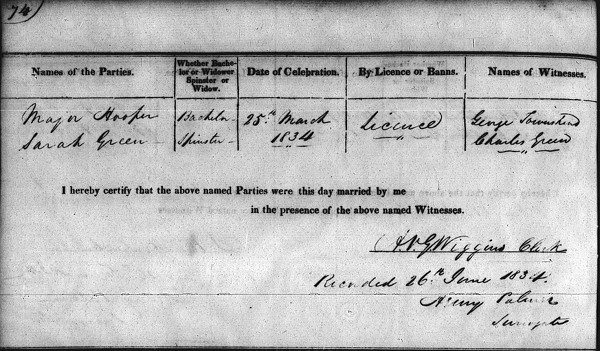 74
Names of the Parties. Whether Bachelor or Widower Spinster or Widow. Date of Celebration. By Licence or Banns. Names of Witnesses.
Major Hooper Bachelor 25th March Licence George Townshend
Sarah Green Spinster 1834 Charles Green
I hereby certify that the above named Parties were this day married by me
in the presence of the above named Witnesses.
A.V.G Wiggins Clerk
Recorded 26th June 1834.
Henry Palmer